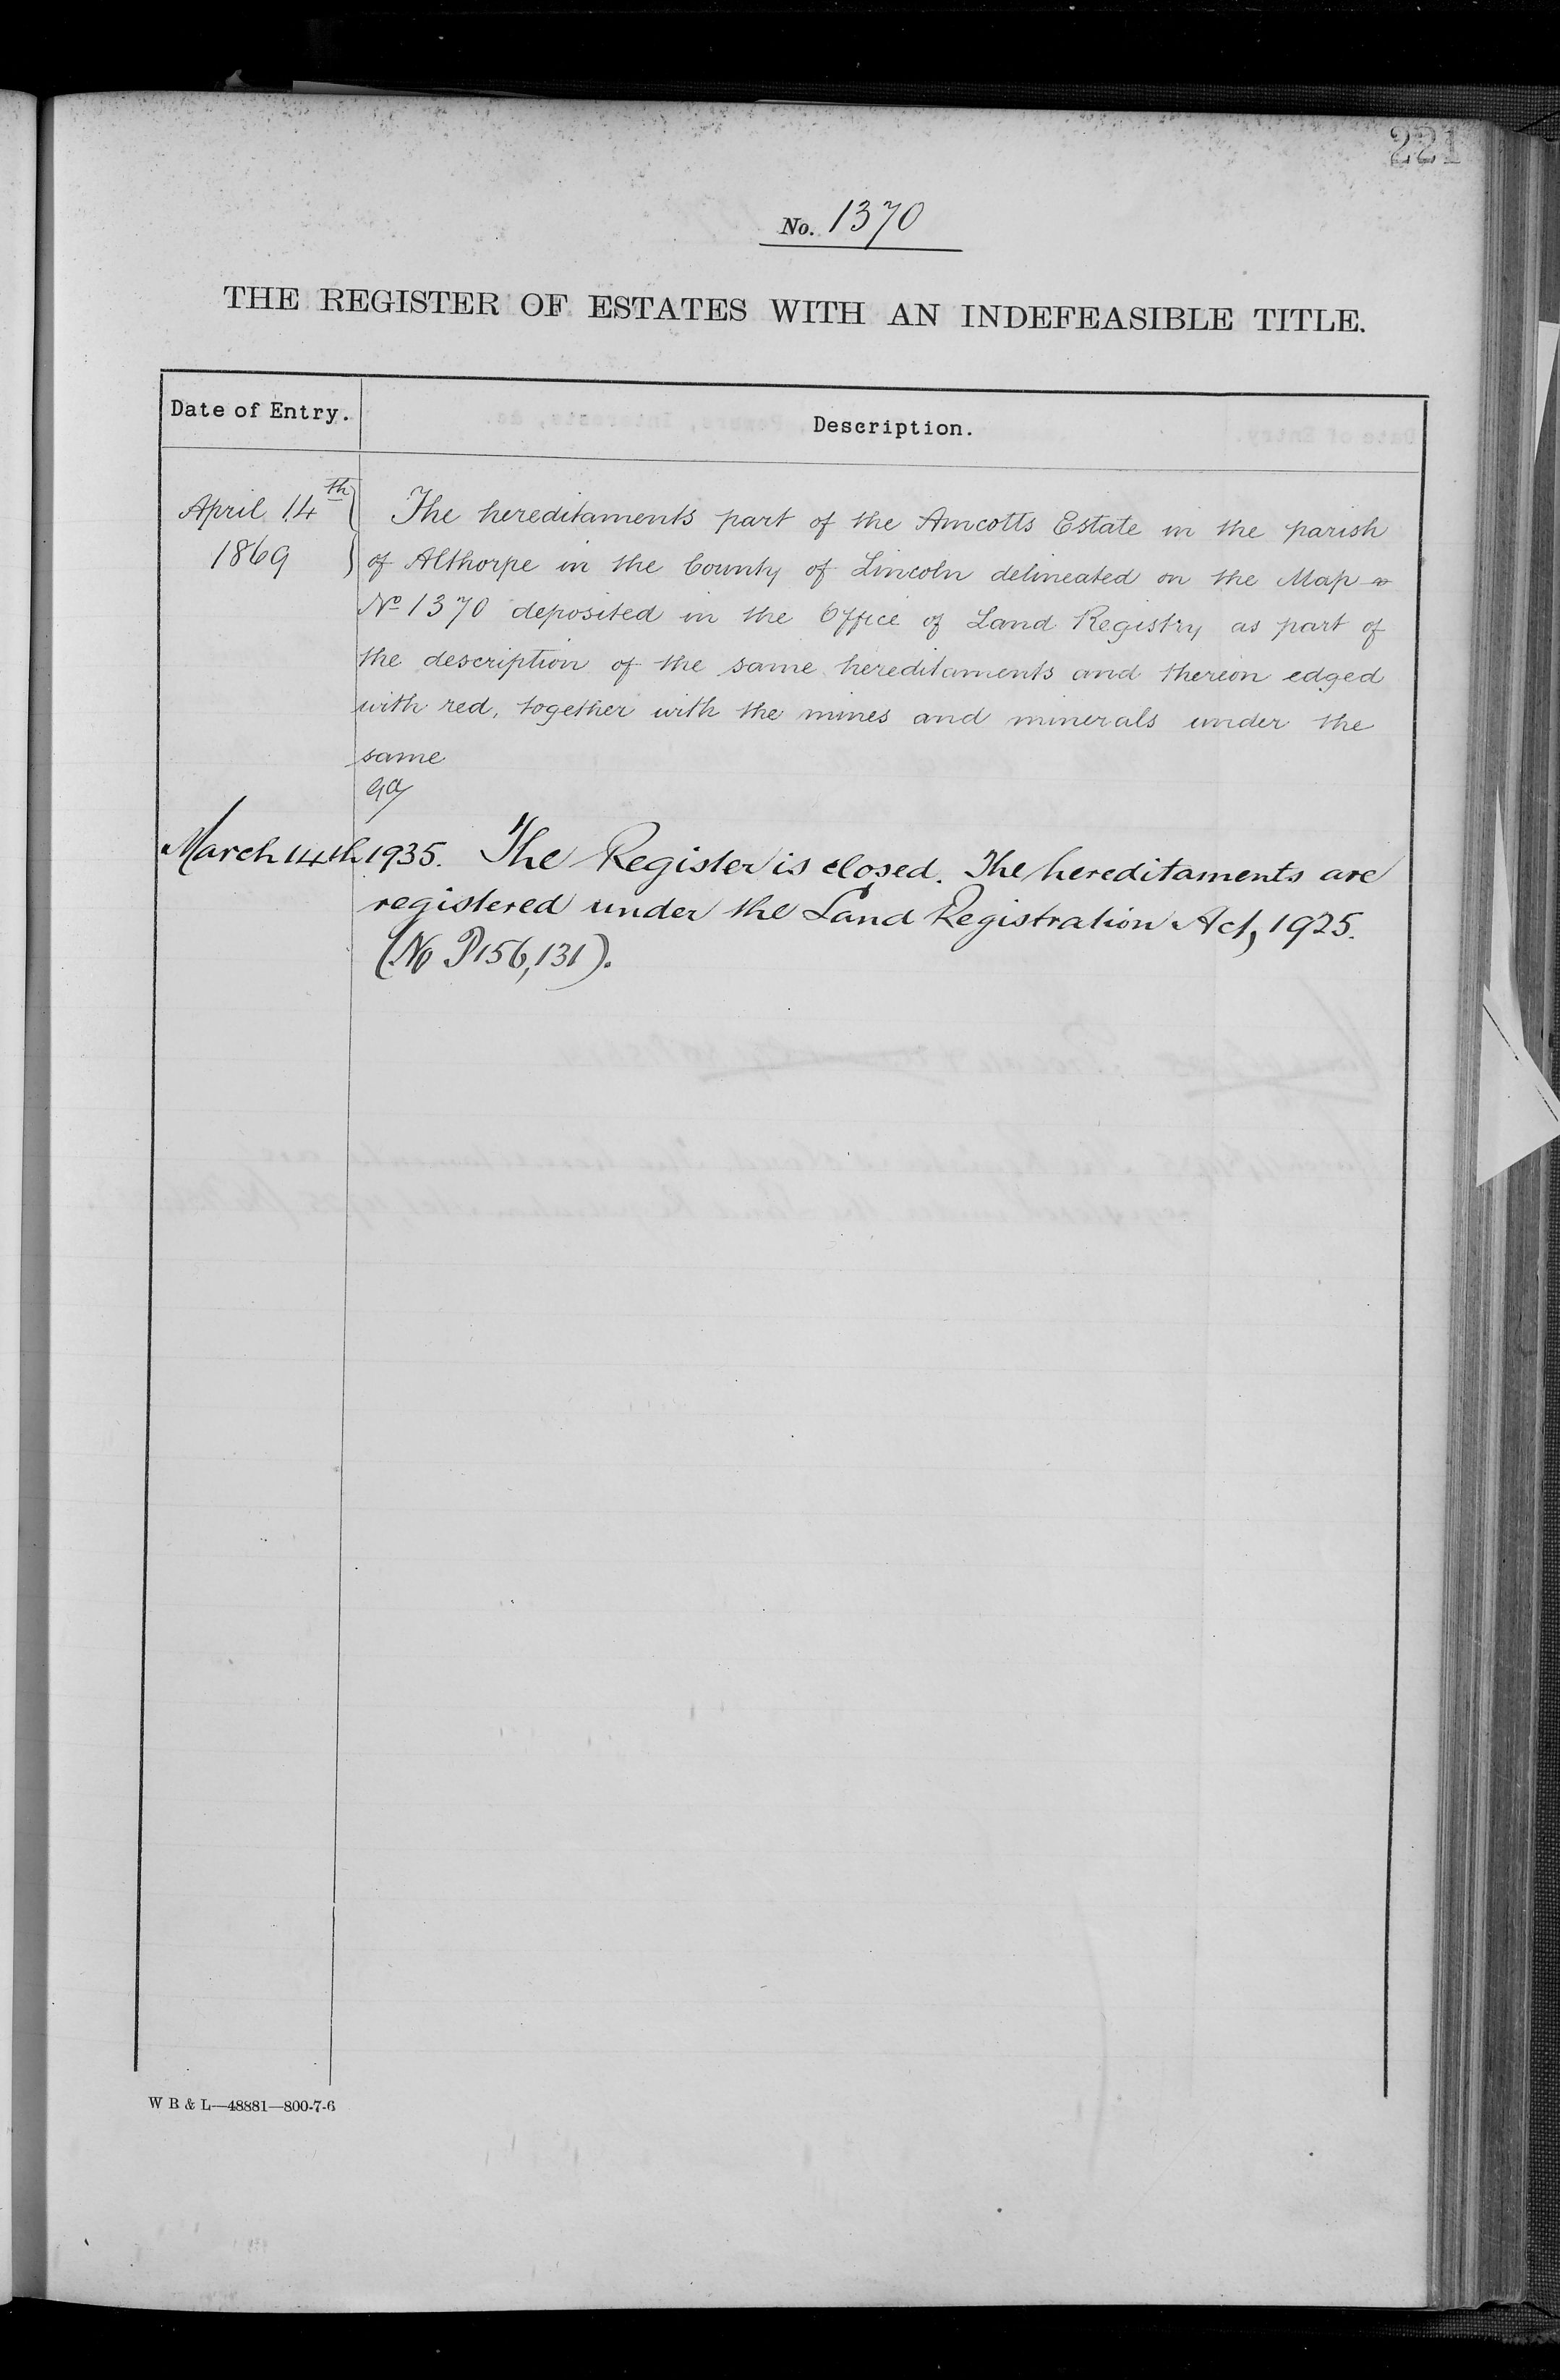 221
No. 1370
THE REGISTER OF ESTATES WITH AN INDEFEASIBLE TITLE.
Date of Entry.
Description.
April 14th
1869
The hereditaments part of the Amcotts Estate in the parish
of Althorpe in the County of Lincoln delineated on the Map
No 1370 deposited in the Office of Land Registry as part of
the description of the same hereditaments and thereon edged
with red, together with the mines and minerals under the
same
March 14th 1935. The Register is closed. The hereditaments are
registered under the Land Registration Act, 1925.
(No P156,131).
W B & L—48881—800-7-6